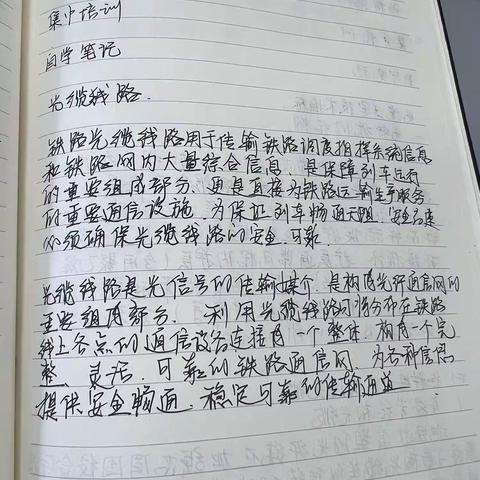 集中培训
自学笔记
光缆线路.
铁路光缆线路用于传输铁路调度指挥系统信息
和铁路网内大量综合信息,是保障列车运行
的重要组成部分,也是直接为铁路运输生产服务
的重要通信设施,为保证列车畅通无阻,安全迅速
必须确保光缆线路的安全,可靠
光缆线路是光信号的传输媒介,是构成光纤通信网的
重要组成部分. 利用光缆线路可将分布在铁路
线上各点的通信设备连接成一个整体,构成一个完
整、灵活,可靠的铁路通信网,为各种信息
提供安全畅通,稳定可靠的传输通道